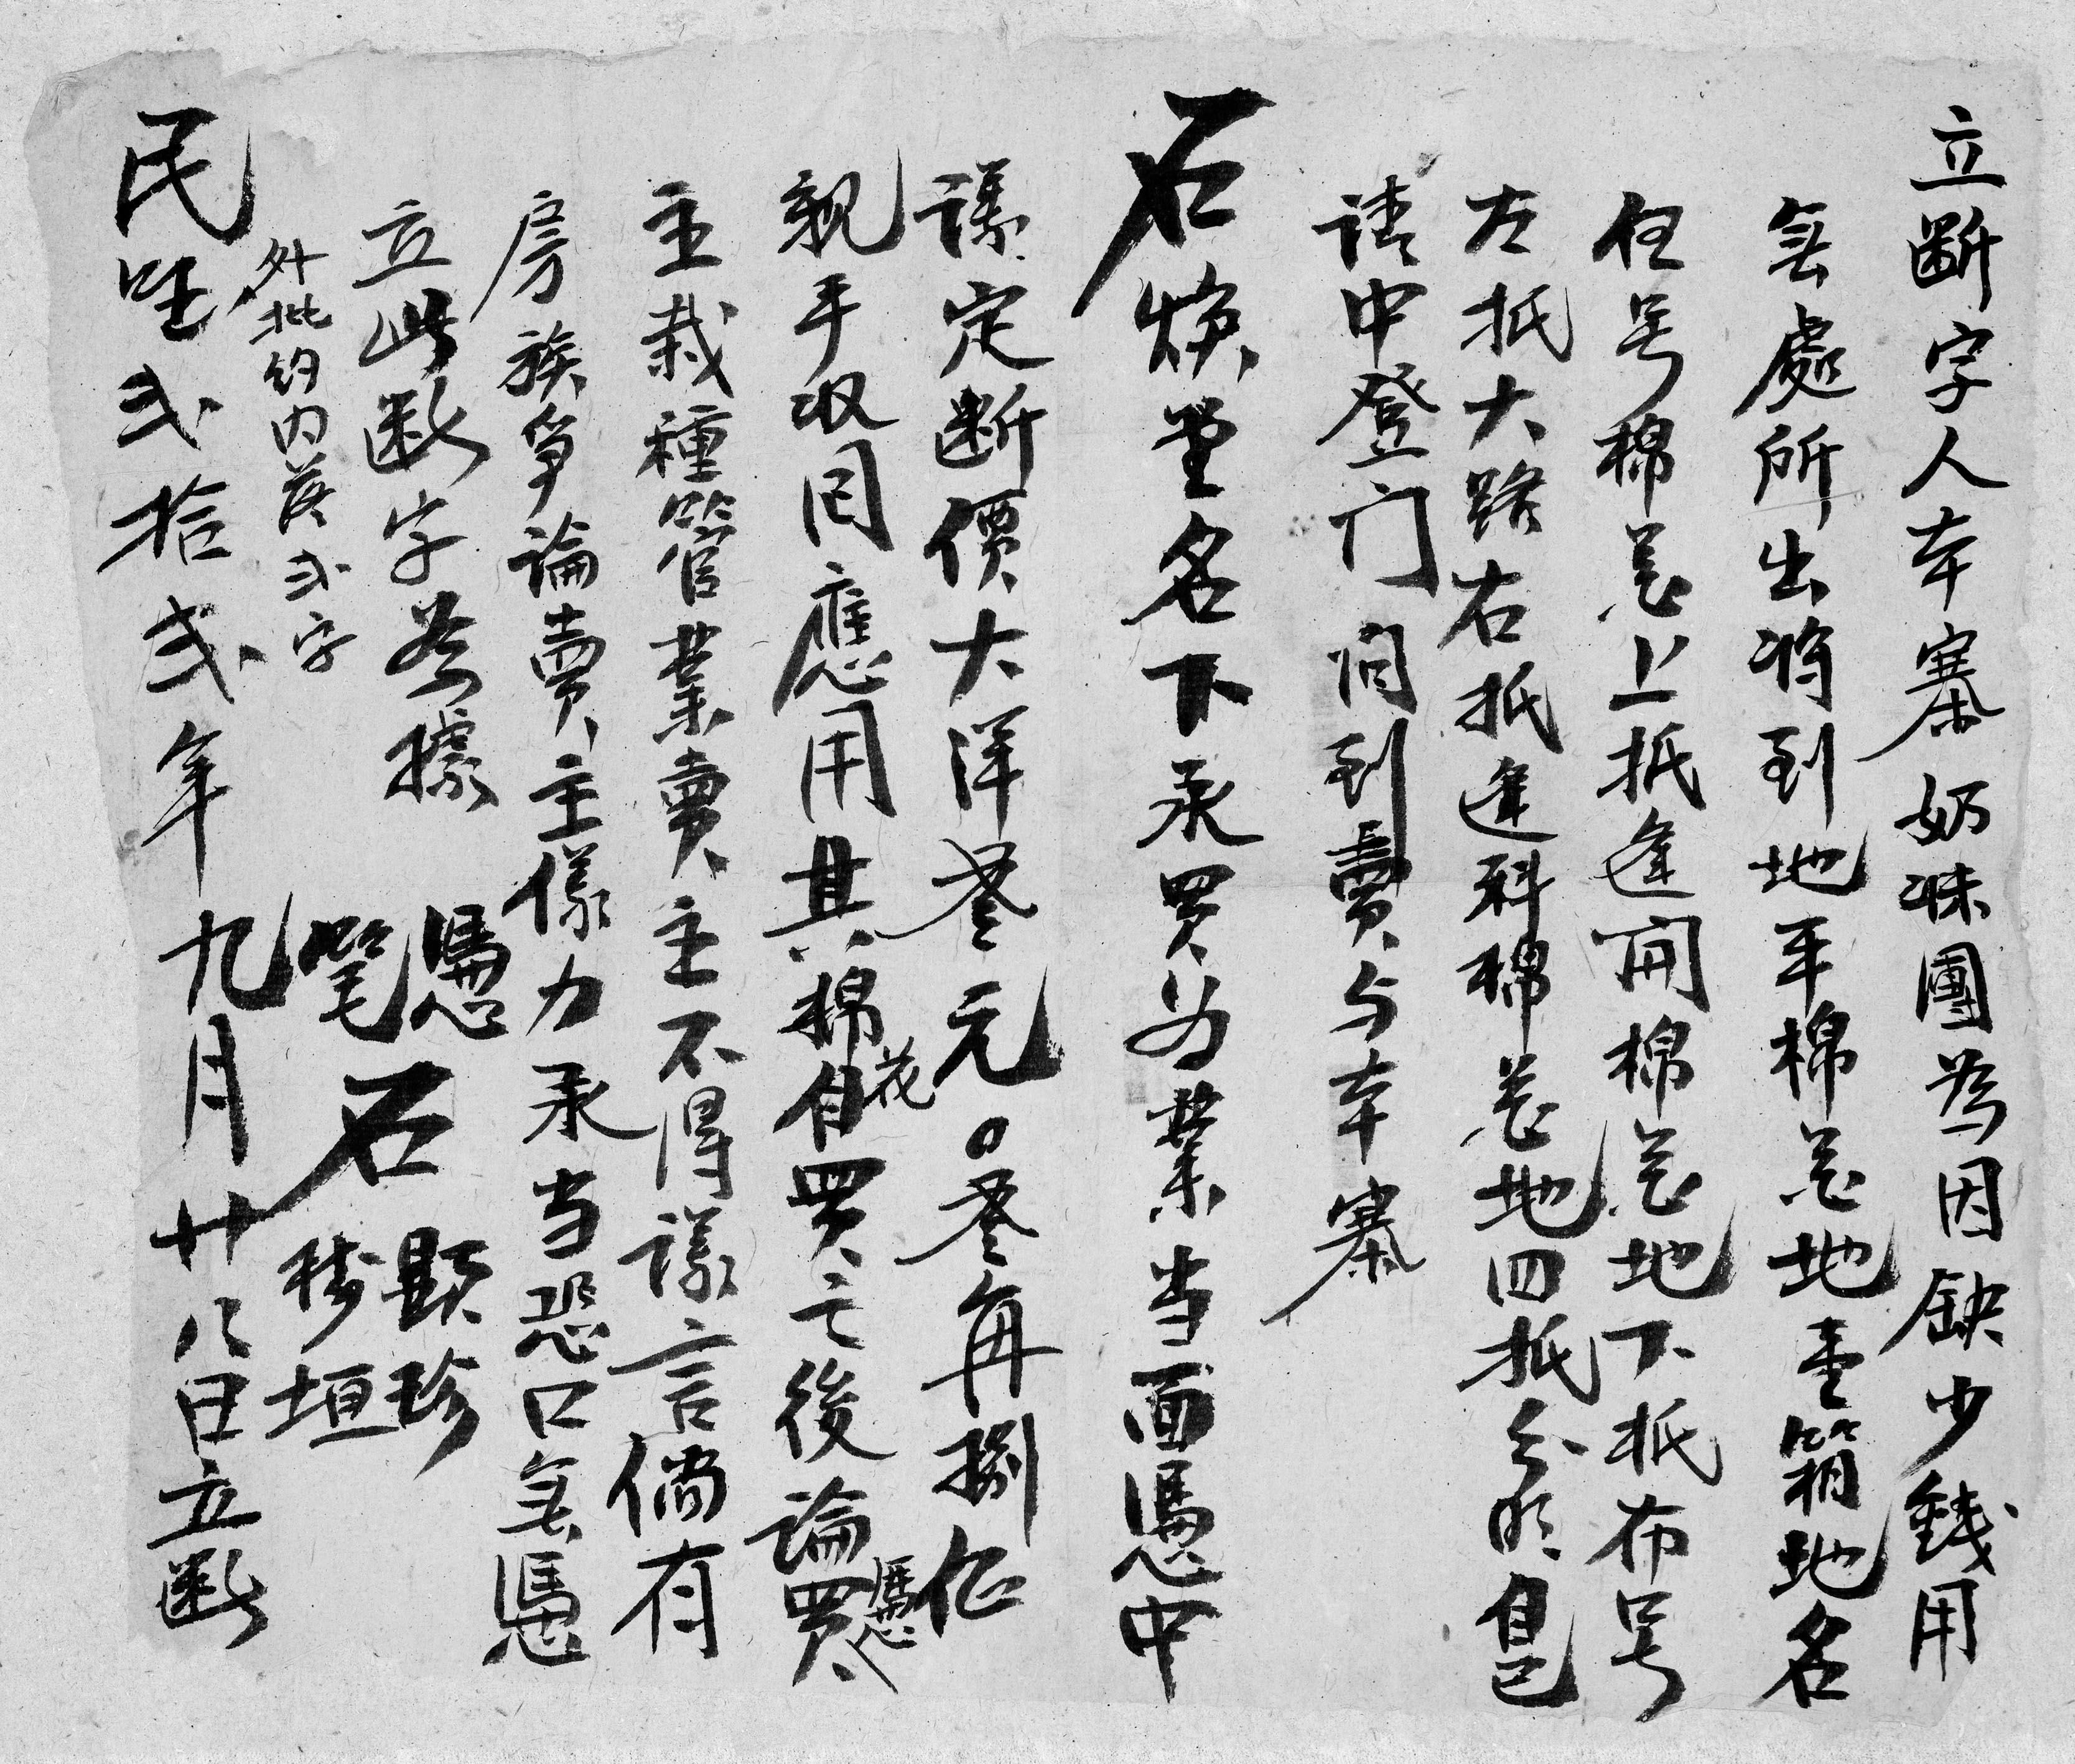 立断字人本寨奶妹團為因缺少錢用
無處所出将到地平棉花地壹箱地名
任号棉花上抵逢間棉花地下抵布号
左抵大路右抵逢科棉花地四抵分明自己
請中登门问到賣与本寨
石煥堂名下承買为業当面憑中
議定断價大洋叁元〇叁角捌仙
親手收回應用其棉花自買之後論買憑
主栽種管業賣主不得議言倘有
房族爭論賣主儀力承当恐口無憑
立此断字為據
憑 石 顯珍
筆 垣
外批約内落弍字
民囯弍拾弍年九月廿八日立断